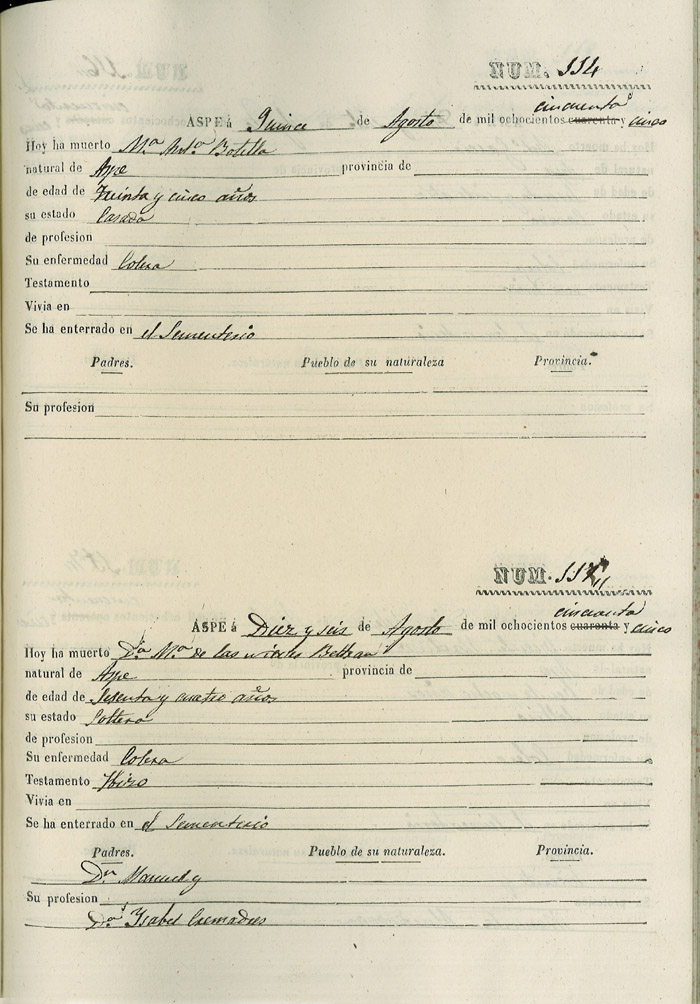 NUM. 114
cincuenta
ASPE á Quince de Agosto de mil ochocientos cuarenta y cinco
Hoy ha muerto M.ª Ant.ª Botella
natural de Aspe provincia de
de edad de Treinta y cinco años
su estado Casada
de profesion
Su enfermedad Colera
Testamento
Vivia en
Se ha enterrado en el Sementerio
Padres. Pueblo de su naturaleza Provincia.
Su profesion
NUM. 115
cincuenta
ASPE á Diez y seis de Agosto de mil ochocientos cuarenta y cinco
Hoy ha muerto D.ª M.ª de las nieves Beltran
natural de Aspe provincia de
de edad de Sesenta y cuatro años
su estado Soltera
de profesion
Su enfermedad Colera
Testamento Hizo
Vivia en
Se ha enterrado en el Sementerio
Padres. Pueblo de su naturaleza. Provincia.
D.n Manuel y
Su profesion
D.ª Ysabel Cremades